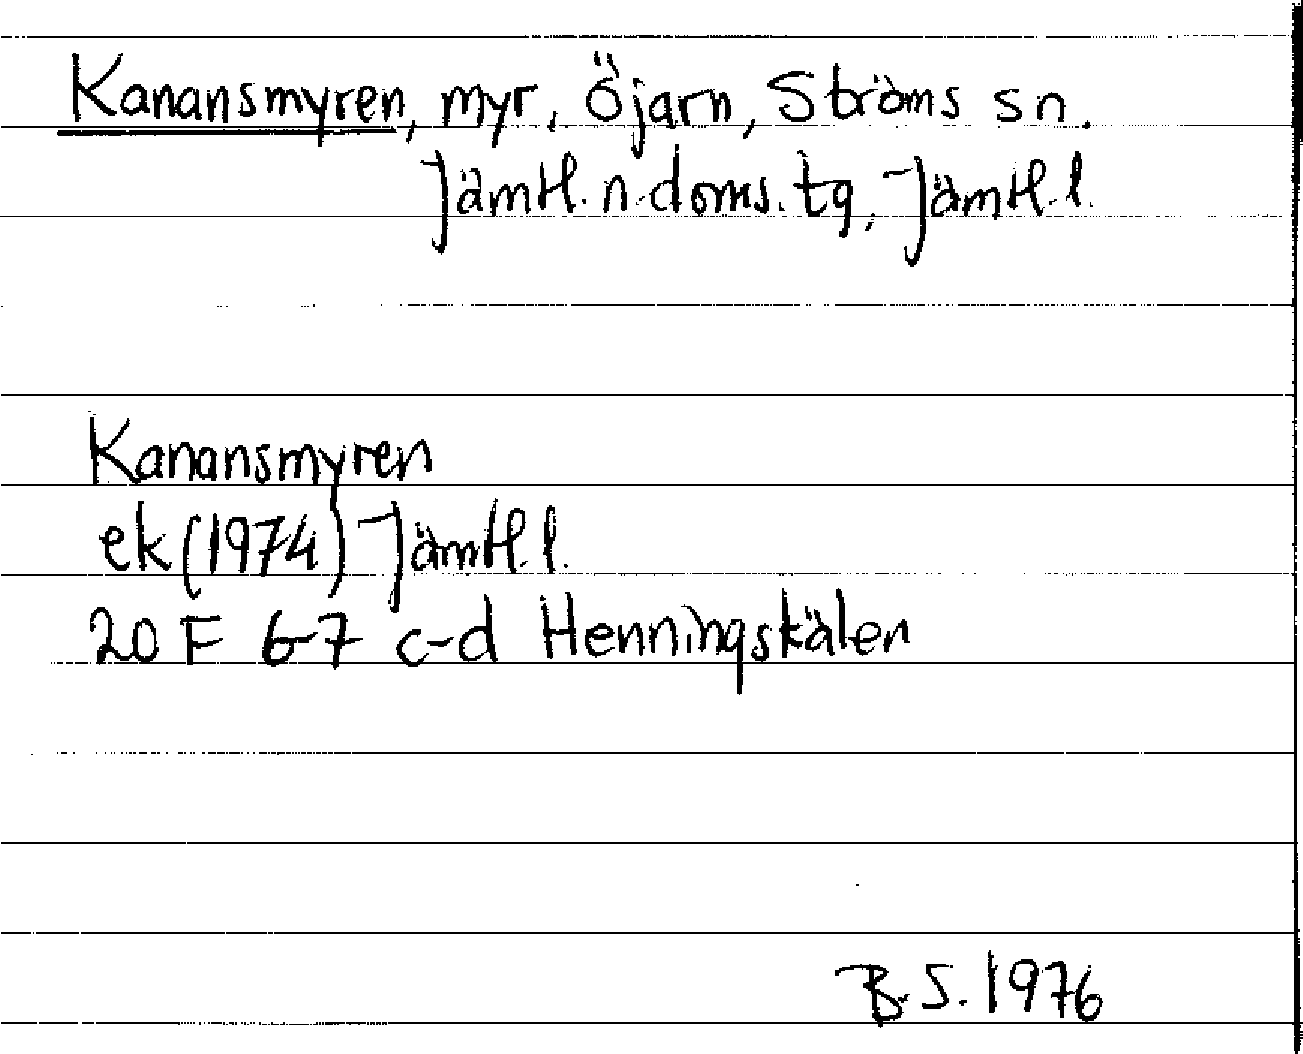 Kanansmyren, myr, Öjarn, Ströms sn.
Jämtl. n. doms. tg, Jämtl. l.
Kanansmyren
ek (1974) Jämtl. l.
20 F 6-7 c-d Henningskälen
B.S. 1976